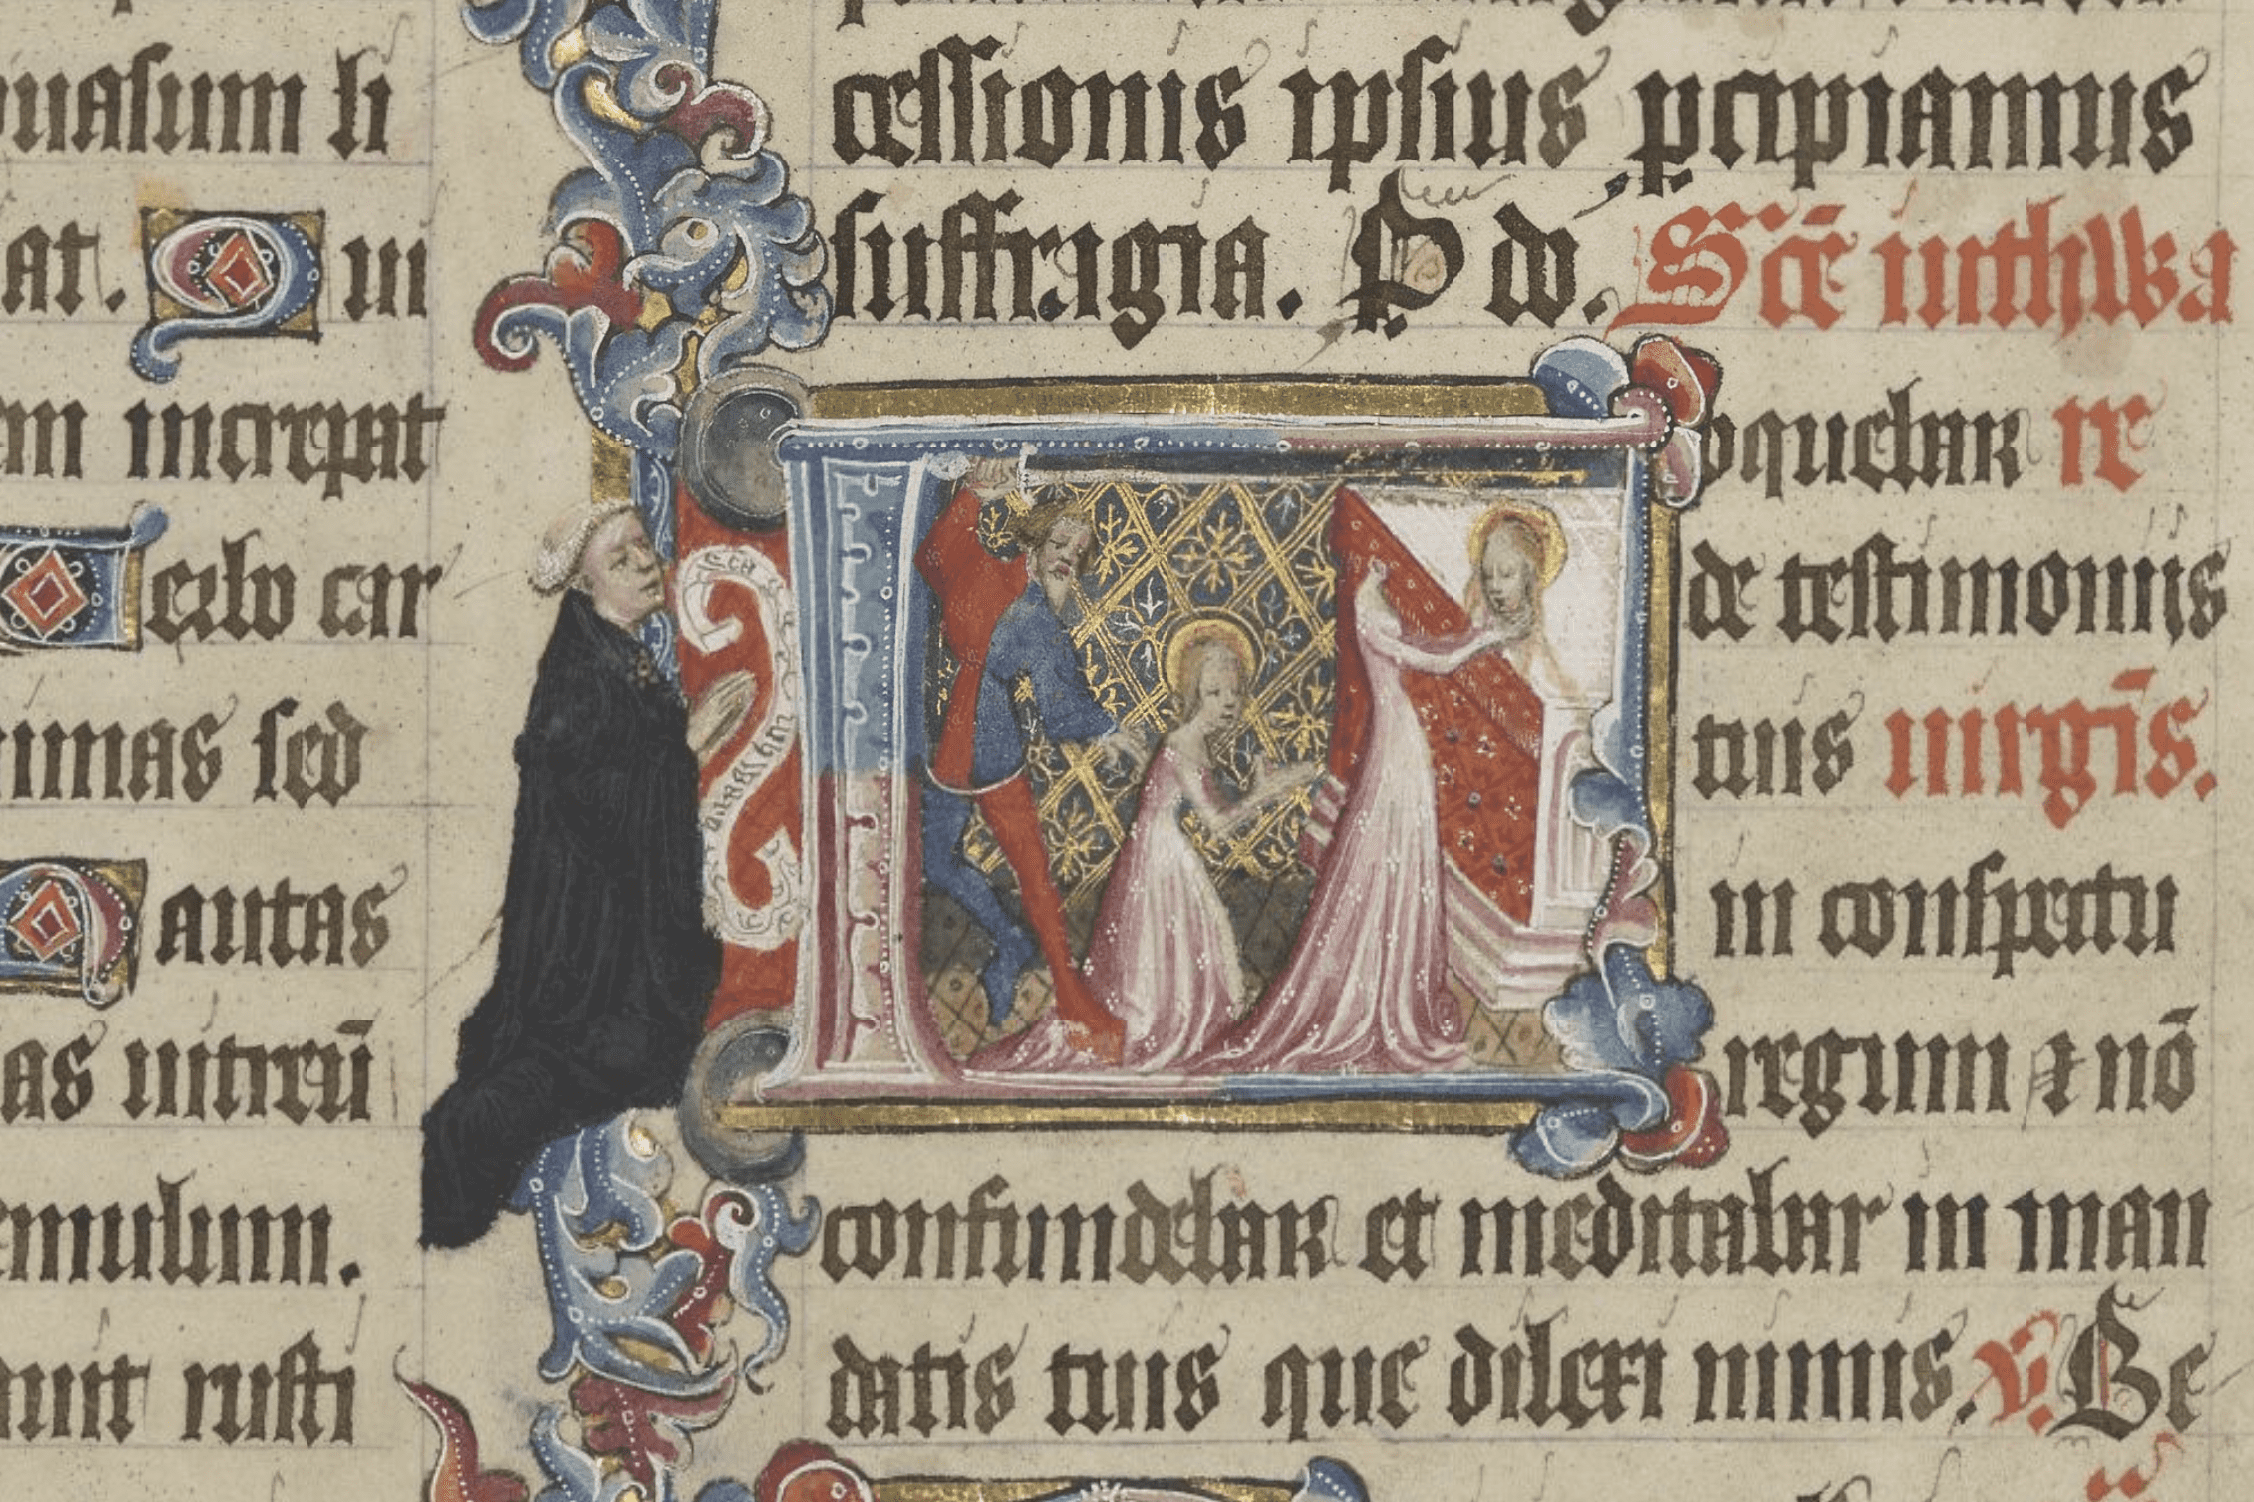 uasum li
at. Qui
em increpat
Verbo car
nimas sed
autas
as uitreū
emulum.
auit rusti
cessionis ipsius ꝑcipiamus
suffragia. P do. Scē iuthWa
oquebar re
de testimoniis
tuis uirgīs.
in conspectu
regum ⁊ nō
confundebar et meditabar in man
datis tuis que dilexi nimis. v. Be